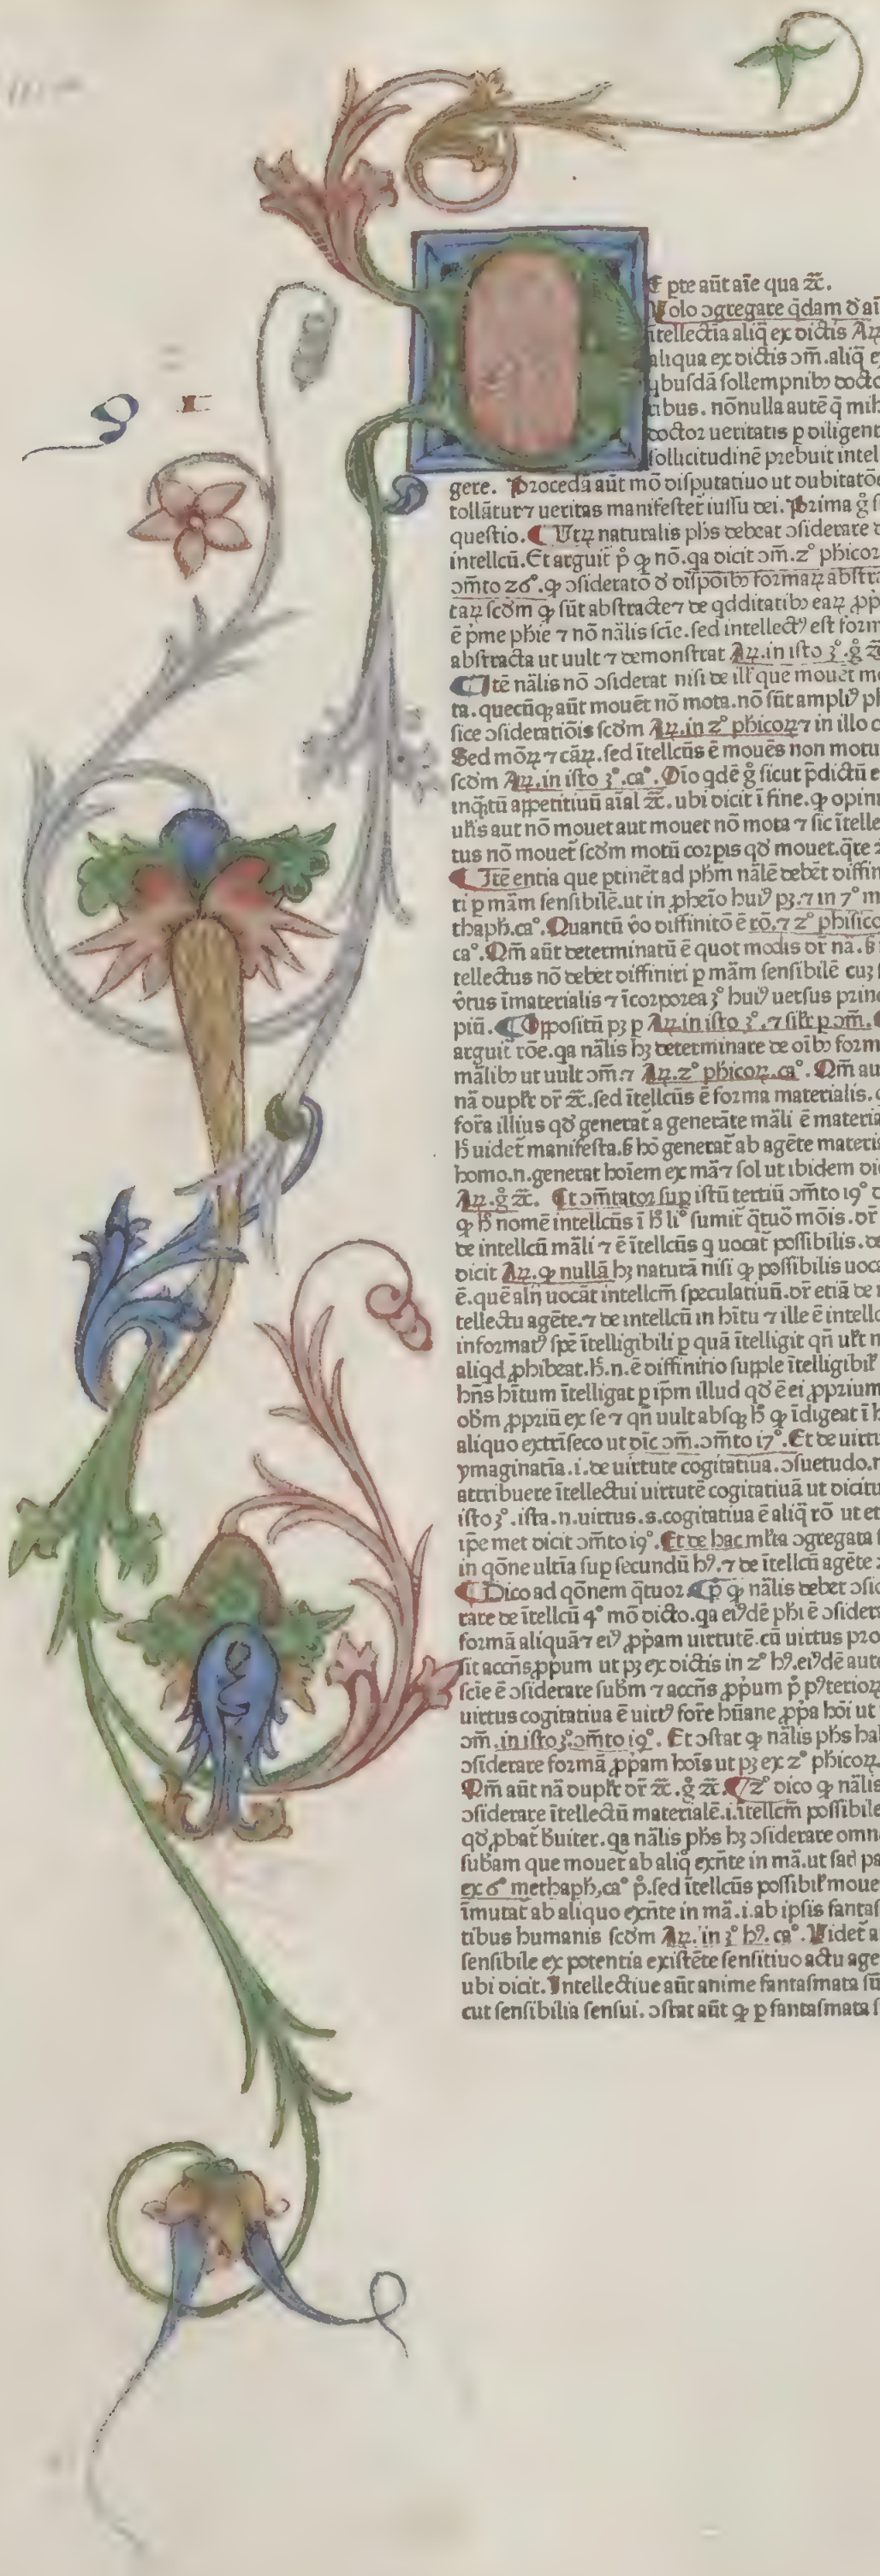 E pte aūt aīe qua ⁊c̄.
Volo ꝯgregare q̄dam ď ai
ītellectīa aliq̄ ex dictis Aꝝ
aliqua ex dictis ꝯm̄. aliq̄ e
qbusdā sollempnibꝫ docto
ribus. nōnulla autē q̄ mih
doctor ueritatis p diligent
sollicitudinē prebuit intel
gere. Procedā aūt mō disputatiuo ut dubitatōe
tollāt̄ur ⁊ ueritas manifestet̄ iussu dei. Prima g̊ s
questio. ¶ Utꝝ naturalis phs debeat ꝯsiderare d
intellcū. Et arguit̄ p̊ ꝙ nō. qa dicit ꝯm̄. 2° phicor
ꝯm̄to 26°. ꝙ ꝯsideratō ď dispōibꝫ formaꝝ abstra
taꝝ scďm ꝙ sūt abstracte ⁊ de qdditatibꝫ eaꝝ ꝓp
ē p̄me phie ⁊ nō nālis scīe. sed intellectꝰ est form
abstracta ut uult ⁊ demonstrat Aꝝ. in isto 3°. g̊ ⁊c̄
¶ Itē nālis nō ꝯsiderat nisi de ill' que mouēt mo
ta. quecūqꝫ aūt mouēt nō mota. nō sūt ampliꝰ ph
sice ꝯsideratiōis scďm Aꝝ. in 2° phicoꝝ ⁊ in illo c
Sed mōꝝ ⁊ cāꝝ. sed ītellcūs ē mouēs non motu
scďm Aꝝ. in isto 3°. ca°. Dīo qdē g̊ sicut p̄dictū e
inq̄tū appetitiuū aīal ⁊c̄. ubi dicit ī fine. ꝙ opini
ul'is aut nō mouet aut mouet nō mota ⁊ sic ītelle
tus nō mouet̄ scďm motū corpis qď mouet. q̄re ⁊
¶ Itē entia que ptinēt ad phm nālē debēt diffin
ri p mām sensibilē. ut in ꝓheīo huiꝰ pꝫ. ⁊ in 7° m
thaph. ca°. Quantū v̊o diffinitō ē rō. ⁊ 2° phisico
ca°. Qm̄ aūt determinatū ē quot modis dr̄ nā. ß i
tellectus nō debet diffiniri p mām sensibilē cuꝫ s
v̊tus īmaterialis ⁊ īcorporea 3° huiꝰ uersus princ
piū. ¶ Oppositū pꝫ p Aꝝ. in isto 3°. ⁊ sil'r p ꝯm̄. ¶
arguit̄ rōe. qa nālis hꝫ determinare de oībꝫ form
mālibꝫ ut uult ꝯm̄. ⁊ Aꝝ. 2° phicoꝝ. ca°. Qm̄ au
nā dupl'r dr̄ ⁊c̄. sed ītellcūs ē forma materialis. q
for̄a illius qď generat̄ a generāte māli ē materia
h̄ uidet̄ manifesta. ß hō generat̄ ab agēte materia
homo. n. generat hoīem ex mā ⁊ sol ut ibidem di
Aꝝ. g̊ ⁊c̄. Et ꝯm̄tator sup istū tertiū ꝯm̄to 19° d
ꝙ h̄ nomē intellcūs ī h̄ li° sumit̄ q̄tuō mōis. dr̄
de intellcū māli ⁊ ē ītellcūs q uocat̄ possibilis. de
dicit Aꝝ. ꝙ nullā hꝫ naturā nisi ꝙ possibilis uoca
ē. quē alij uocāt intellcm̄ speculatiuū. dr̄ etiā de i
tellectu agēte. ⁊ de intellcū in hītu ⁊ ille ē intelle
informatꝰ spē ītelligibili p quā ītelligit qn̄ ul't n
aliqd ꝓhibeat. h̄. n. ē diffinitio supple ītelligibil'
hn̄s hītum ītelligat p ip̄m illud qď ē ei ꝓprium
obm̄ ꝓpriū ex se ⁊ qn̄ uult absqꝫ h̄ ꝙ īdigeat ī h
aliquo extrīseco ut dīc ꝯm̄. ꝯm̄to 17°. Et de uirtu
ymaginatīa. i. de uirtute cogitatiua. ꝯsuetudo. n
attribuere ītellectui uirtutē cogitatiuā ut dicitu
isto 3°. ista. n. uirtus. s. cogitatiua ē aliq̄ rō ut et
ip̄e met dicit ꝯm̄to 19°. Et de hac ml'ta ꝯgregata s
in qōne ultīa sup secundū hꝰ. ⁊ de ītellcū agēte ⁊
¶ Dico ad qōnem q̄tuor. ¶ p̊ ꝙ nālis debet ꝯsid
rare de ītellcū 4° mō dicto. qa eiꝰdē phi ē ꝯsidera
formā aliquā ⁊ eiꝰ ꝓpam uirtutē. cū uirtus pro
sit accn̄s ꝓpum ut pꝫ ex dictis in 2° hꝰ. eiꝰdē aute
scīe ē ꝯsiderare subm̄ ⁊ accn̄s ꝓpum p̊ pꝰterioꝝ
uirtus cogitatiua ē uirtꝰ for̄e hn̄ane ꝓpa hoi ut
ꝯm̄. in isto 3°. ꝯm̄to 19°. Et ꝯstat ꝙ nālis phs hab
ꝯsiderare formā ꝓpam hoīs ut pꝫ ex 2° phicoꝝ.
Qm̄ aūt nā dupl'r dr̄ ⁊c̄. g̊ ⁊c̄. ¶ 2° dico ꝙ nālis
ꝯsiderare ītellectū materialē. i. ītellcm̄ possibile
qď ꝓbat̄ b̄uiter. qa nālis phs hꝫ ꝯsiderare omn
sub̄am que mouet̄ ab aliq̊ exn̄te in mā. ut sad pa
ex 6° methaph. ca° p̊. sed ītellcūs possibil' moue
īmutat̄ ab aliquo exn̄te in mā. i. ab ipsis fantas
tibus humanis scďm Aꝝ. in 3° hꝰ. ca°. Videt̄ a
sensibile ex potentia existēte sensitiuo actu age
ubi dicit. Intellectiue aūt anime fantasmata sū
cut sensibilia sensui. ꝯstat aūt ꝙ p fantasmata s